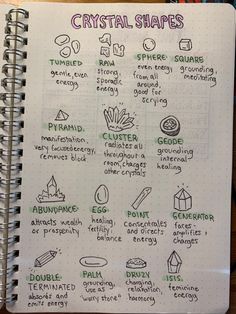 CRYSTAL SHAPES
TUMBLED
gentle, even
energy
RAW
strong,
sporadic
energy
SPHERE
even energy
from all
around,
good for
scrying
SQUARE
grounding,
meditating
PYRAMID
manifestation,
very focused energy,
removes block
CLUSTER
radiates all
throughout a
room, charges
other crystals
GEODE
grounding
internal
healing
ABUNDANCE
attracts wealth
or prosperity
EGG
healing,
fertility,
balance
POINT
concentrates
and directs
energy
GENERATOR
forces-
amplifies,
charges
DOUBLE
TERMINATED
absorbs and
emits energy
PALM
grounding,
use as
"worry stone"
DRUZY
charging,
relaxation,
harmony
ISIS
feminine
energy